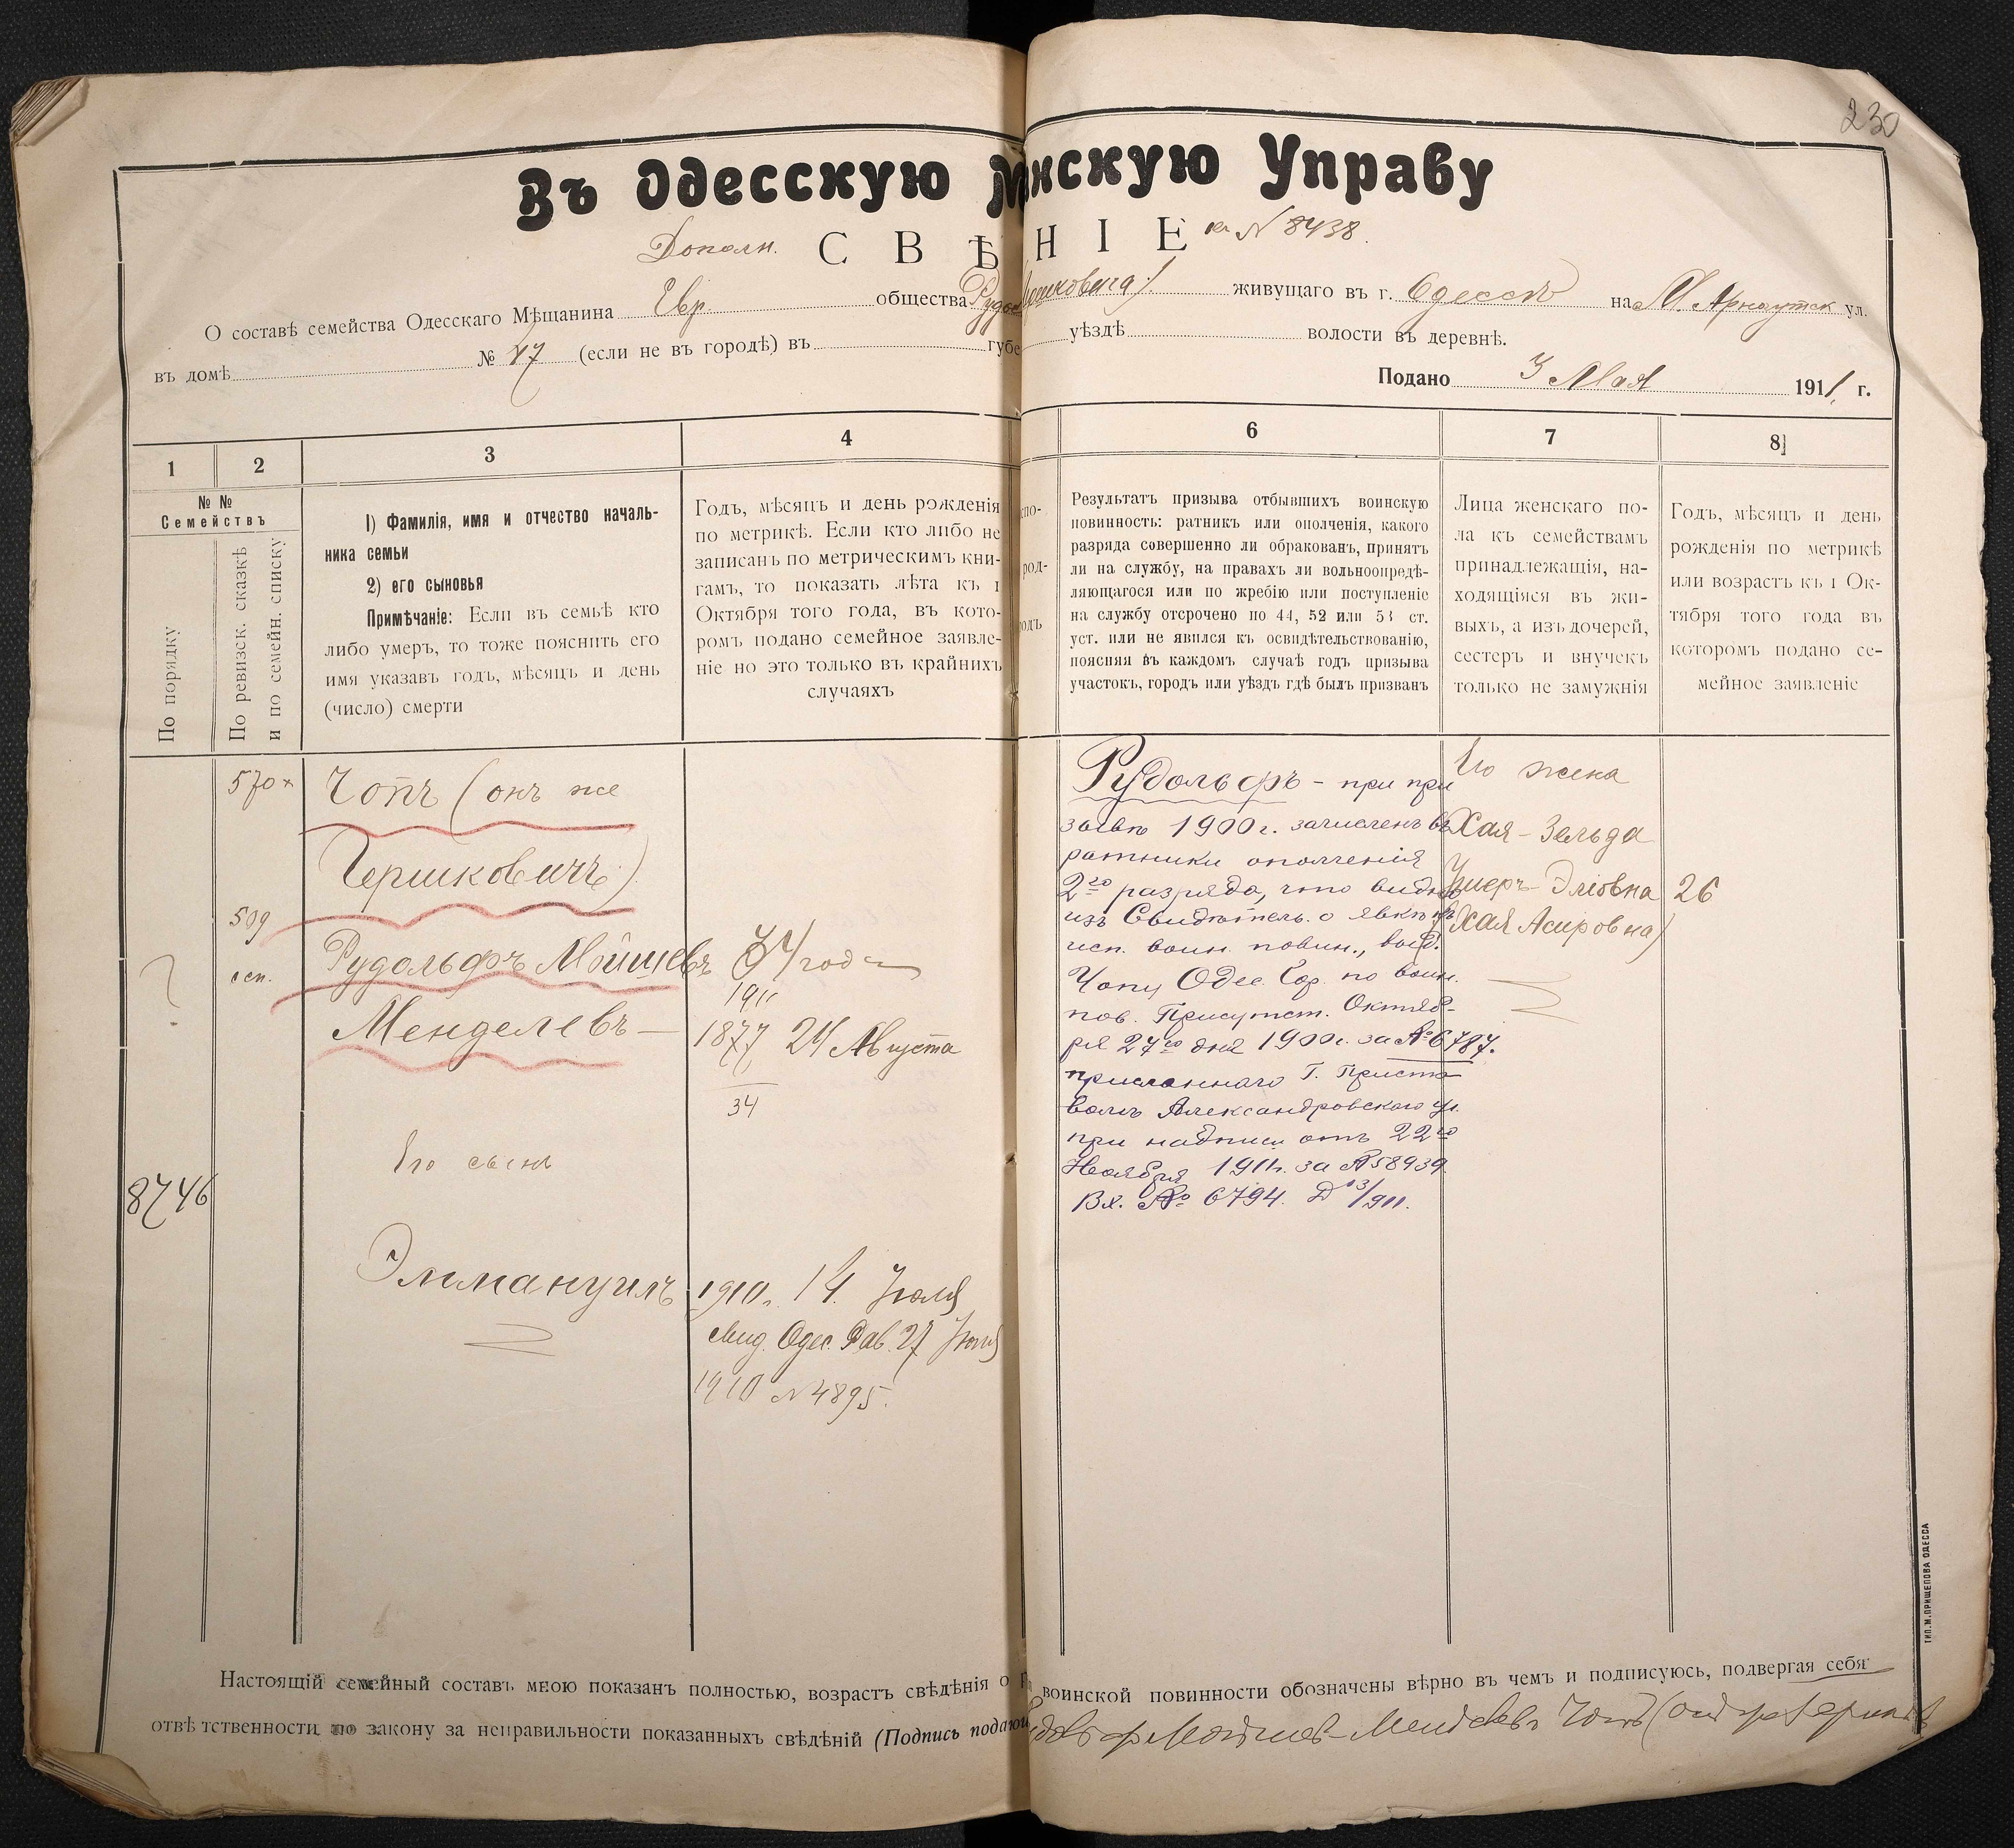 230
Въ Одесскую М нскую Управу
Дополн. С В Ѣ Н І Е къ N 8438.
О составѣ семейства Одесскаго Мѣщанина Евр. общества живущаго въ г. Одессѣ на М. Арнаутск ул.
въ домѣ № 47 (если не въ городѣ) въ губе уѣздѣ волости въ деревнѣ.
Подано 3 Мая 1911 г.
1 2 3 4 6 7 8
№ №
Семействъ
По порядку
По ревизск. сказкѣ
и по семейн. списку
1) Фамилія, имя и отчество началь-
ника семьи
2) его сыновья
Примѣчаніе: Если въ семьѣ кто
либо умеръ, то тоже пояснить его
имя указавъ годъ, мѣсяцъ и день
(число) смерти
Годъ, мѣсяцъ и день рожденія
по метрикѣ. Если кто либо не
записанъ по метрическимъ кни-
гамъ, то показать лѣта къ 1
Октября того года, въ кото-
ромъ подано семейное заявле-
ніе но это только въ крайнихъ
случаяхъ
спо-
род-
одъ
Результатъ призыва отбывшихъ воинскую
повинность: ратникъ или ополченія, какого
разряда совершенно ли обракованъ, принятъ
ли на службу, на правахъ ли вольноопредѣ-
ляющагося или по жребію или поступленіе
на службу отсрочено по 44, 52 или 53 ст.
уст. или не явился къ освидѣтельствованію,
поясняя въ каждомъ случаѣ годъ призыва
участокъ, городъ или уѣздъ гдѣ былъ призванъ
Лица женскаго по-
ла къ семействамъ
принадлежащія, на-
ходящіяся въ жи-
выхъ, а изъ дочерей,
сестеръ и внучекъ
только не замужнія
Годъ, мѣсяцъ и день
рожденія по метрикѣ
или возрастъ къ 1 Ок-
тября того года въ
которомъ подано се-
мейное заявленіе
570
509
сен.
8746
Чопъ (онъ же
Гершковичъ)
Рудольфъ Мойшевъ
Менделевъ
Его сынъ
Эммануилъ
34 года
1911
1877 24 Августа
34
1910 г. 14 Іюля
Одес. Рав. 27 Іюля
1910 N 4895.
Рудольфъ - при при
зывѣ 1900 г. зачисленъ въ
ратники ополченія
2го разряда, что видно
изъ Свидѣтель. о явкѣ къ
исп. воин. повин., выд.
Чопу Одес. Гор. по воин.
пов. Присутст. Октяб-
ря 27го дня 1900 г. за № 6787.
присланнаго Г. Приста
вомъ Александровскаго уч.
при надписи отъ 22го
Ноября 1911 г. за № 58939
Вх. № 6794. Д 13/911.
Его жена
Хая-Зельда
Ушеръ-Эліовна
(Хая Асировна)
26
Настоящій семейный составъ мною показанъ полностью, возрастъ свѣдѣнія о воинской повинности обозначены вѣрно въ чемъ и подписуюсь, подвергая себя
отвѣтственности по закону за неправильности показанныхъ свѣдѣній (Подпись подающ Мойшев Менделевъ Чопъ
ТИП. М. ПРИЩЕПОВА ОДЕССА